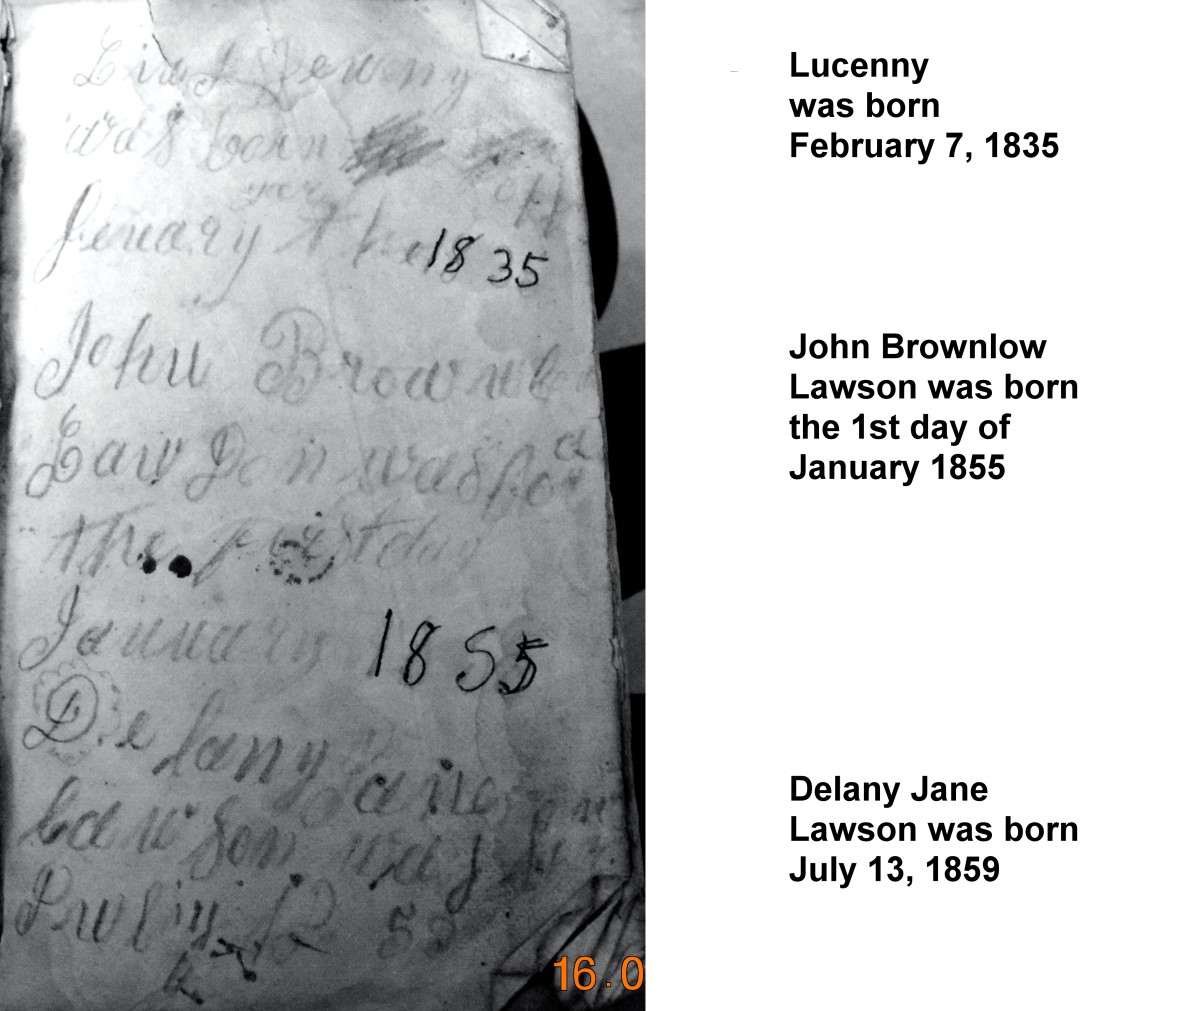 was born
yer
Jenuary the 1835
John Brownlo
Law Son was bor
the first day
January 1855
Delany
Jane
Lawson was
58
16.0
Lucenny
was born
February 7, 1835
John Brownlow
Lawson was born
the 1st day of
January 1855
Delany Jane
Lawson was born
July 13, 1859